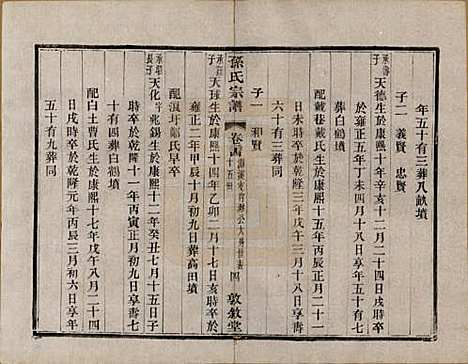 年五十有三葬八畝墳
子二 義賢 忠賢
承壽子 天德生於康熙十年辛亥十二月二十四日戌時卒
於雍正五年丁未四月二十六日享年五十有七
葬白鶴墳
配戴巷戴氏生於康熙十五年丙辰正月二十五
日未時卒於乾隆三年戊午十月十三日享壽
六十有三葬同
子一 和賢
孫氏宗譜
卷四
四
敦敘堂
天球生於康熙十四年乙卯二月十七日亥時卒於
雍正二年甲辰十月初九日葬高田墳
配滾圩鄭氏早卒
承祖長子 天化字兆錫生於康熙十二年癸丑七月十五日子
時卒於乾隆十一年丙寅正月初九日享壽七
十有四葬白鶴墳
配白土曹氏生於康熙十七年戊午八月二十四
日戌時卒於乾隆元年丙辰三月初六日享年
五十有九葬同